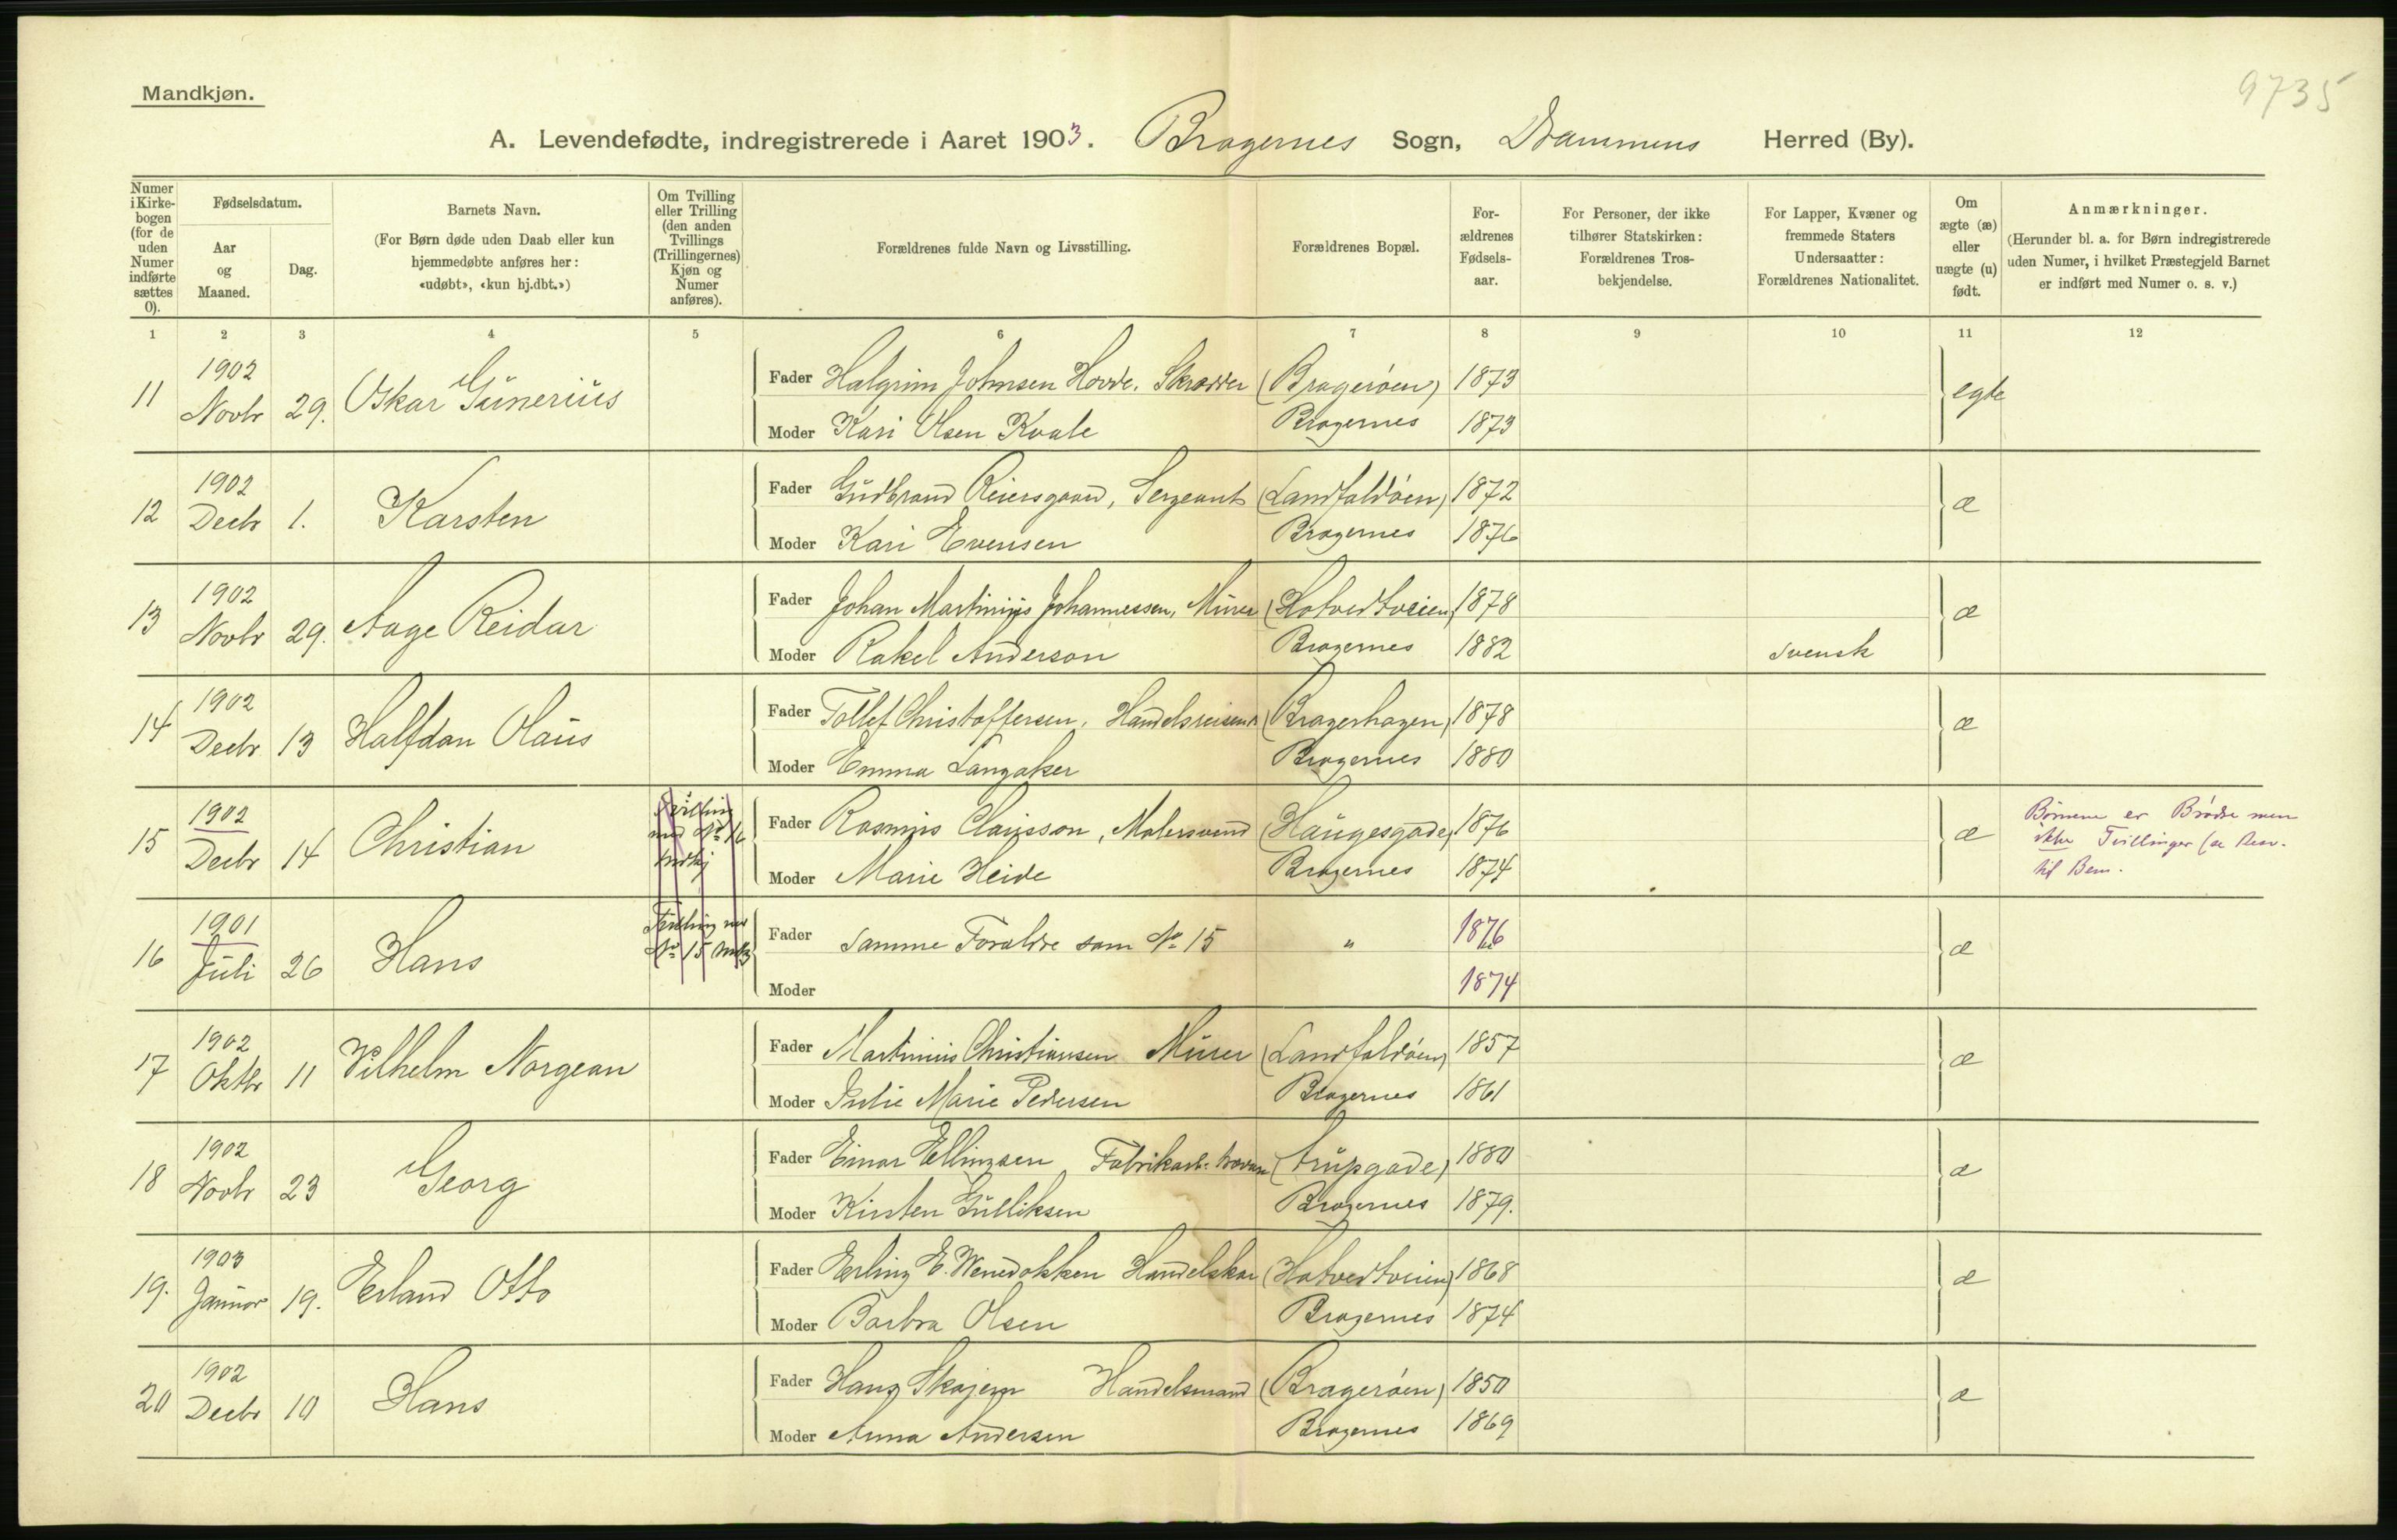 9735
Mandkjøn.
A. Levendefødte, indregistrerede i Aaret 1903. Bragernes Sogn, Drammens Herred (By).
Numer i Kirke-bogen (for de uden Numer indførte sættes 0).
Fødselsdatum.
Aar og Maaned.
Dag.
Barnets Navn.
(For Børn døde uden Daab eller kun hjemmedøbte anføres her: «udøbt», «kun hj.dbt.»)
Om Tvilling eller Trilling (den anden Tvillings (Trillingernes) Kjøn og Numer anføres).
Forældrenes fulde Navn og Livsstilling.
Forældrenes Bopæl.
For-ældrenes Fødsels-aar.
For Personer, der ikke tilhører Statskirken: Forældrenes Tros-bekjendelse.
For Lapper, Kvæner og fremmede Staters Undersaatter: Forældrenes Nationalitet.
Om ægte (æ) eller uægte (u) født.
Anmærkninger.
(Herunder bl. a. for Børn indregistrerede uden Numer, i hvilket Præstegjeld Barnet er indført med Numer o. s. v.)
1 2 3 4 5 6 7 8 9 10 11 12
11 1902 Novbr 29. Oskar Gunerius Fader Halgrim Johnsen Hovde, Skrædder (Bragerøen) 1873 egte
Moder Kari Olsen Kvale Bragernes 1873
12 1902 Decbr 1. Karsten Fader Gudbrand Reiersgaard, Sergeant (Landfaldøen) 1872 æ
Moder Kari Evensen Bragernes 1876
13 1902 Novbr 29. Aage Reidar Fader Johan Martinius Johannessen, Murer (Hotvedtveien) 1878 æ
Moder Rakel Anderson Bragernes 1882 svensk
14 1902 Decbr 13 Halfdan Olaus Fader Tollef Christoffersen, Handelsreisende (Bragerhagen) 1878 æ
Moder Emma Langaker Bragernes 1880
15 1902 Decbr 14 Christian Tvilling med No 16 Mdkj Fader Rasmus Clausson, Malersvend (Haugesgade) 1876 æ Børnene er Brødre men ikke Tvillinger (se Besv. til Bem.
Moder Marie Heide Bragernes 1874
16 1901 Juli 26 Hans Tvilling med No 15 Mdkj Fader Samme Forældre som No 15 " 1876 æ
Moder 1874
17 1902 Oktbr 11 Vilhelm Norgean Fader Martinius Christiansen Murer (Landfaldøen) 1857 æ
Moder Julie Marie Pedersen Bragernes 1861
18 1902 Novbr 23 Georg Fader Einar Ellingsen Fabrikarb. (Trupgade) 1880 æ
Moder Kirsten Gulliksen Bragernes 1879.
19. 1903 Januar 19. Erland Otto Fader Erling E. Wenedokken Handelskar (Hotvedtveien) 1868 æ
Moder Barbra Olsen Bragernes 1874
20 1902 Decbr 10 Hans Fader Hans Skajem Handelsmand (Bragerøen) 1850 æ
Moder Anna Andersen Bragernes 1869